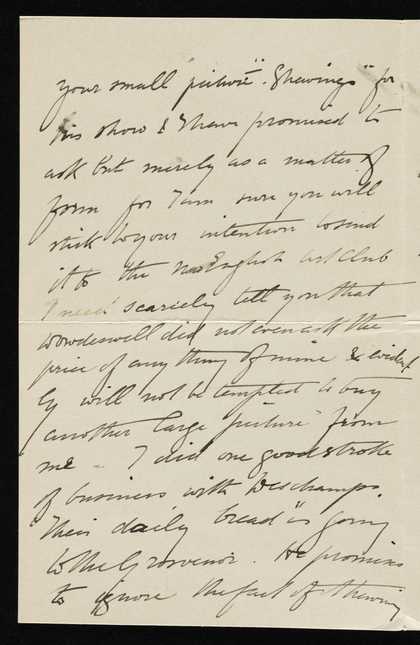 your small picture "Shavings" for
his show & I have promised to
ask but merely as a matter of
form for I am sure you will
stick to your intention to send
it to the New English Art Club
I need scarcely tell you that
Dowdeswell did not even ask the
price of anything of mine & evident
ly will not be tempted to buy
another large picture from
me – I did one good stroke
of business with Deschamps.
"Their daily bread" is going
to the Grosvenor. He promises
to ignore the fact of showing